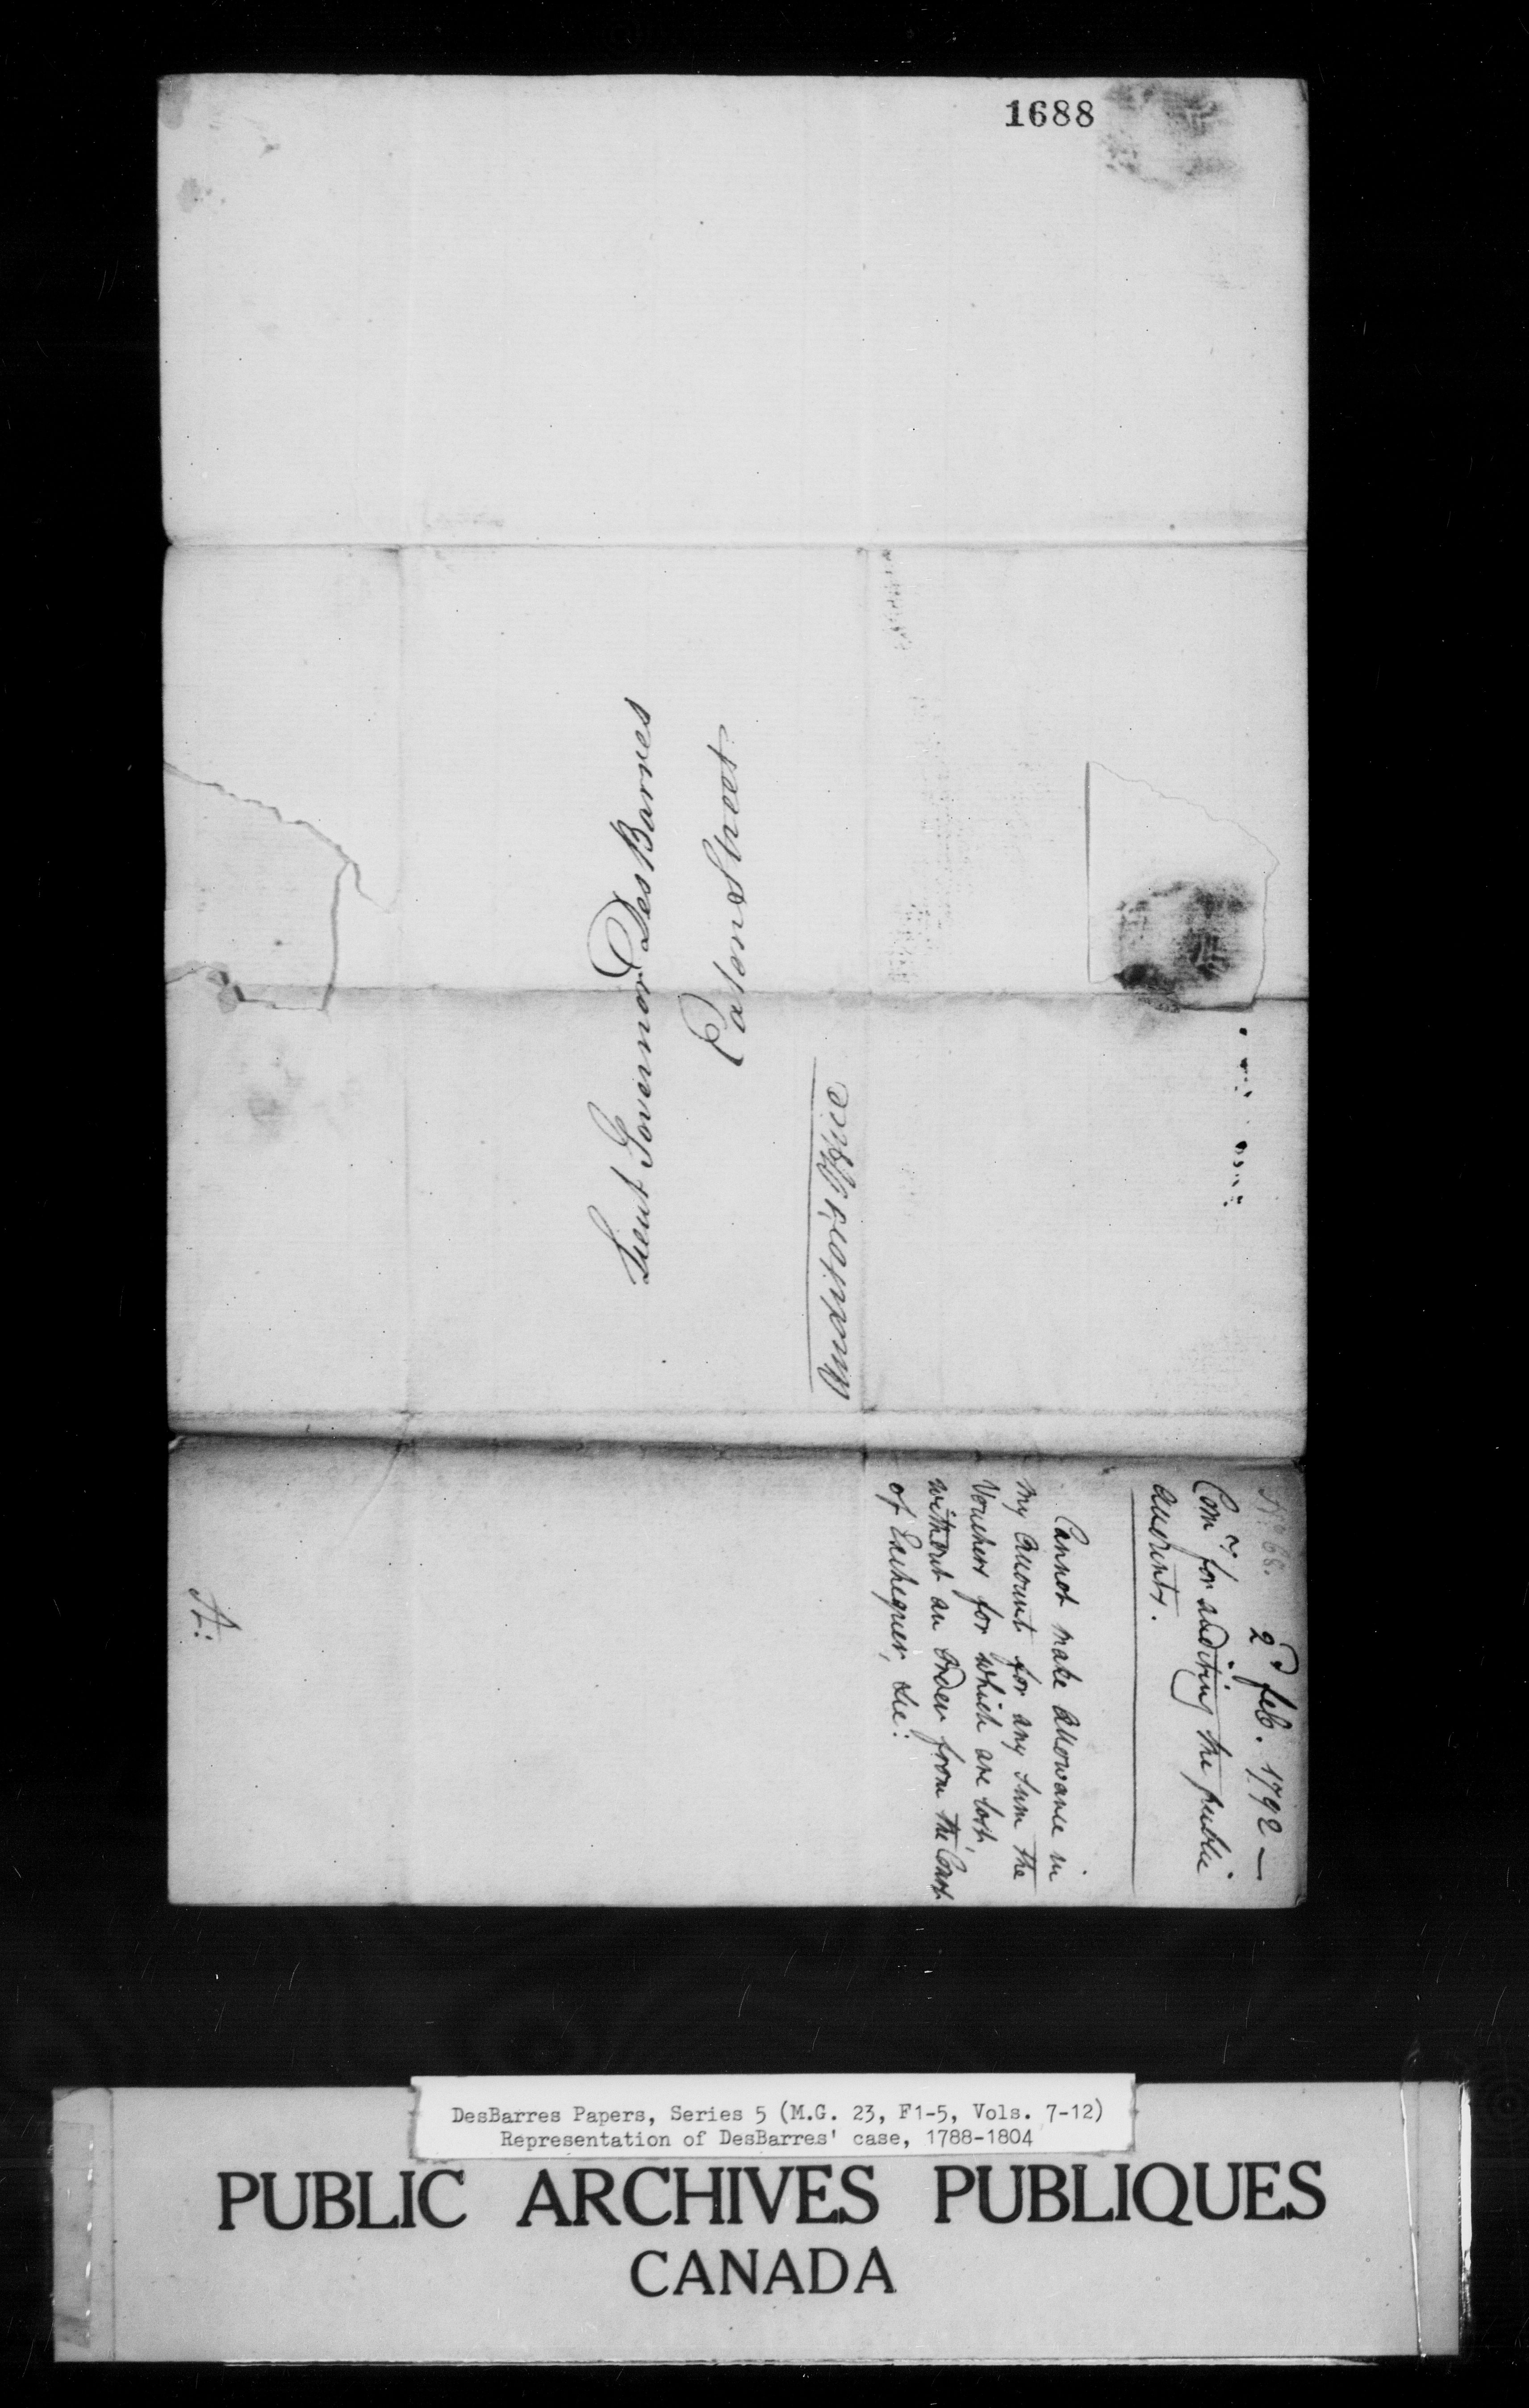 1688
Lieut Governor DesBarres
Eaton Street
Auditor's Office
No. 68.
2d feb. 1792 —
Comrs for auditing the public
Accounts.
Cannot make allowance in
my Account for any Sum the
Vouchers for which are lost,
without an Order from the Court
of Exchequer, &c:
A:
DesBarres Papers, Series 5 (M.G. 23, F1-5, Vols. 7-12)
Representation of DesBarres' case, 1788-1804
PUBLIC ARCHIVES PUBLIQUES
CANADA